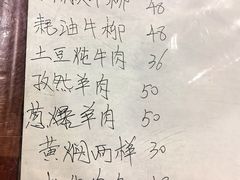 牛柳 48
耗油牛柳 48
土豆炖牛肉 36
孜然羊肉 50
葱爆羊肉 50
黄焖两样 30